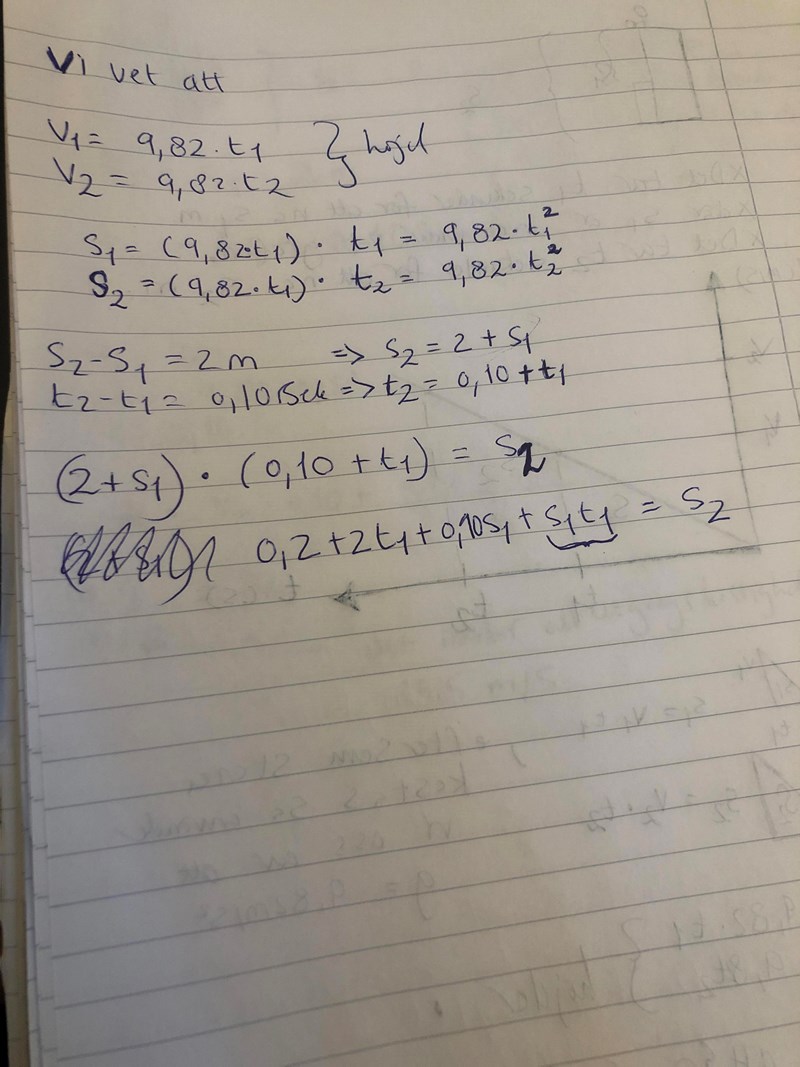 Vi vet att
V1 = 9,82 · t1 } höjd
V2 = 9,82 · t2
S1 = (9,82·t1) · t1 = 9,82 · t1²
S2 = (9,82·t1) · t2 = 9,82 · t2²
S2 - S1 = 2 m => S2 = 2 + S1
t2 - t1 = 0,10 => t2 = 0,10 + t1
(2 + S1) · (0,10 + t1) = S2
0,2 + 2t1 + 0,10S1 + S1t1 = S2